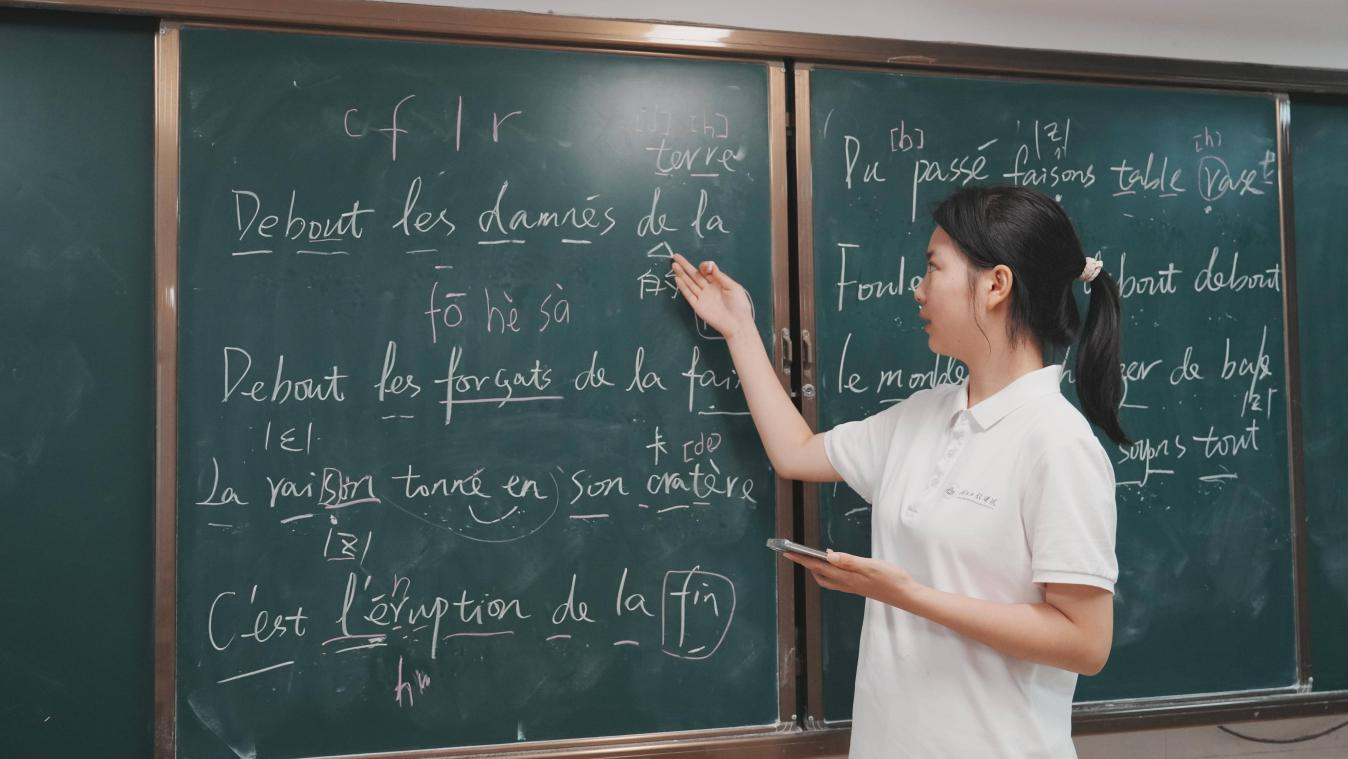 c f l r
[h]
terre
Debout les damnés de la
fō hè sà
Debout les forçats de la faim
|ε|
La raison tonne en son cratère
|z|
C'est l'éruption de la fin
Du passé faisons table rase
[b] |z| [h]
Foule debout debout
le monde de base
|z|
soyons tout